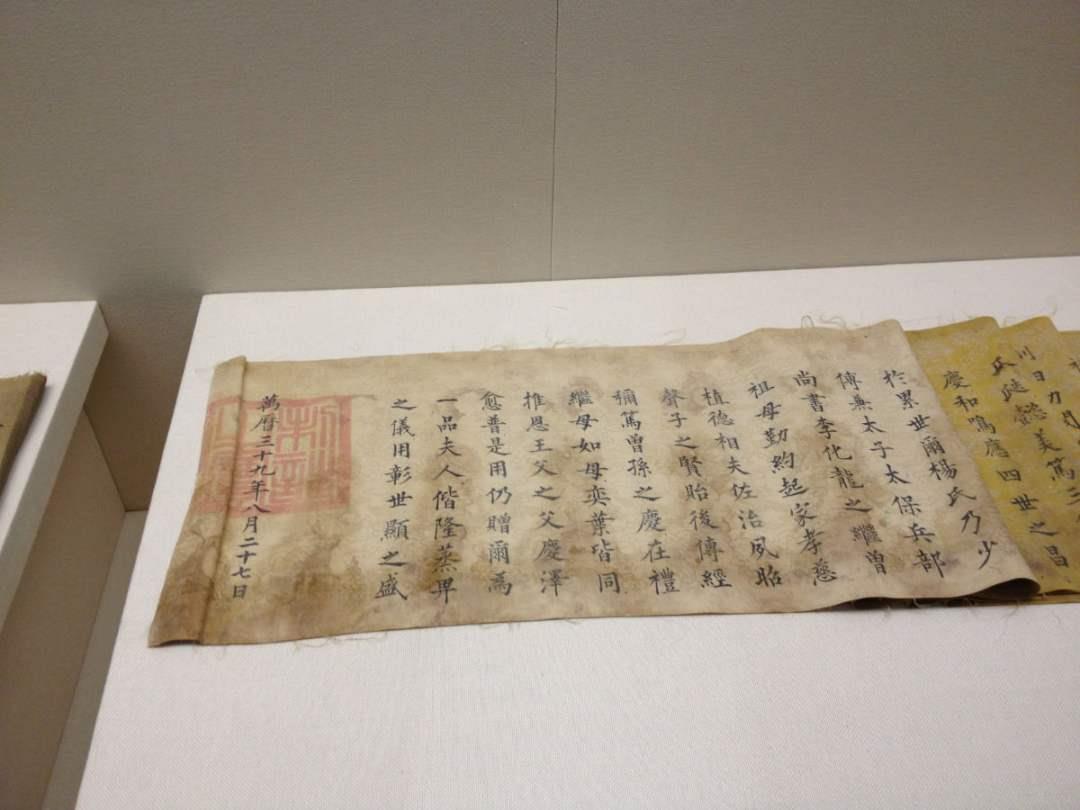 氏毓懿美篤三
慶和鳴應四世之昌
於累世爾楊氏乃少
傅兼太子太保兵部
尚書李化龍之繼曾
祖母勤約起家孝慈
植德相夫佐治夙昭
聲子之賢貽後傳經
彌篤曾孫之慶在禮
繼母如母奕葉皆同
推恩王父之父慶澤
愈普是用仍贈爾為
一品夫人偕隆蒸畀
之儀用彰世顯之盛
萬曆三十九年八月二十七日